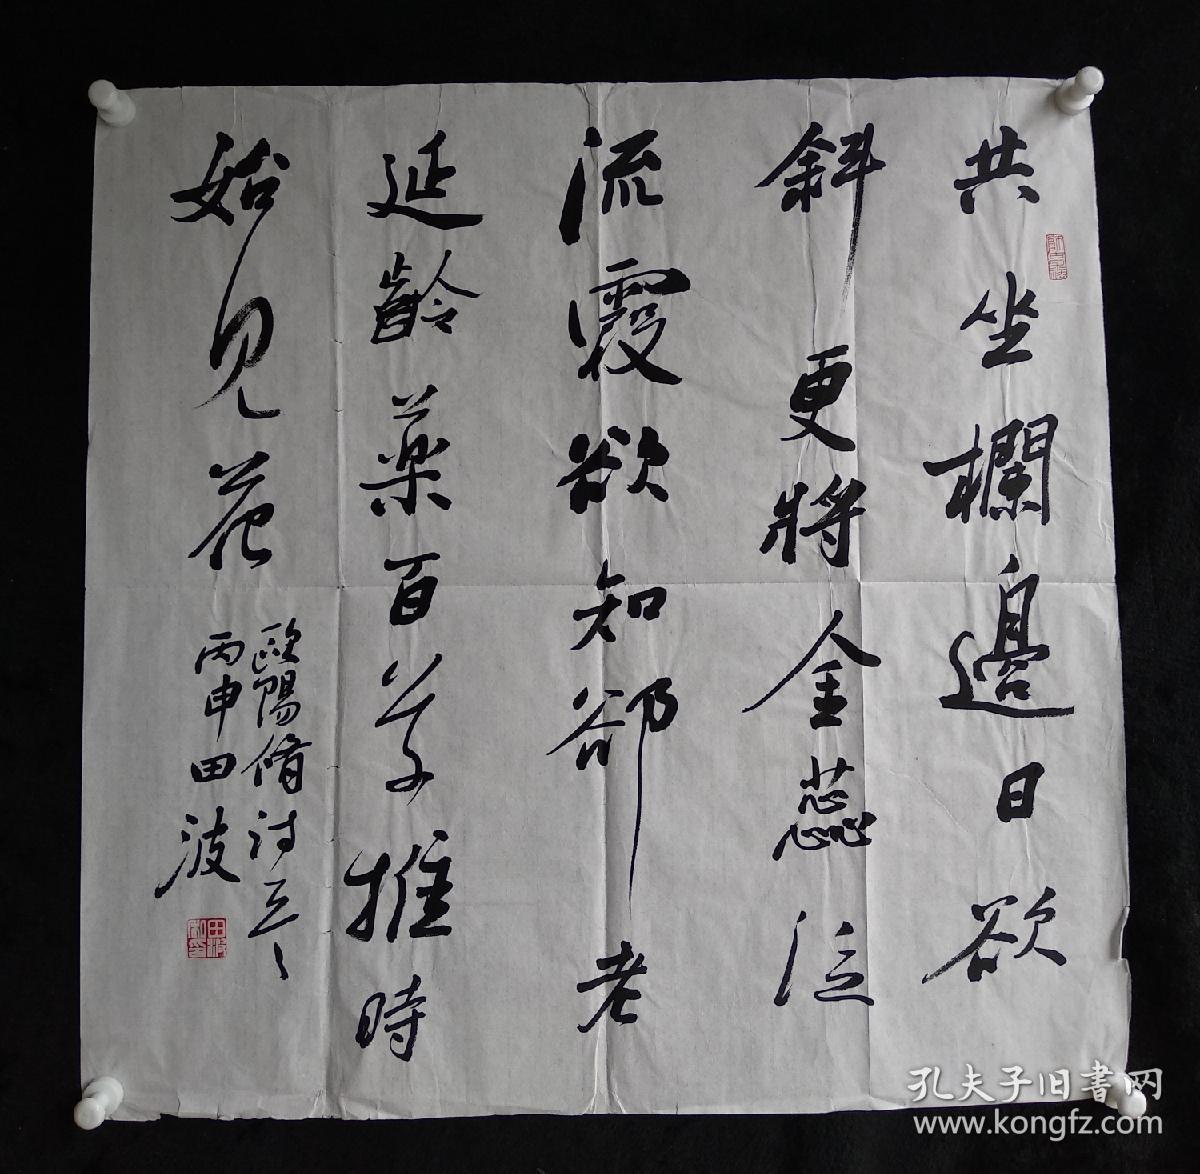 共坐欄邊日欲
斜更將金蕊泛
流霞欲知卻老
延齡藥百草推時
始見花
歐陽脩詩
丙申田波
田波私印
孔夫子旧書网
www.kongfz.com